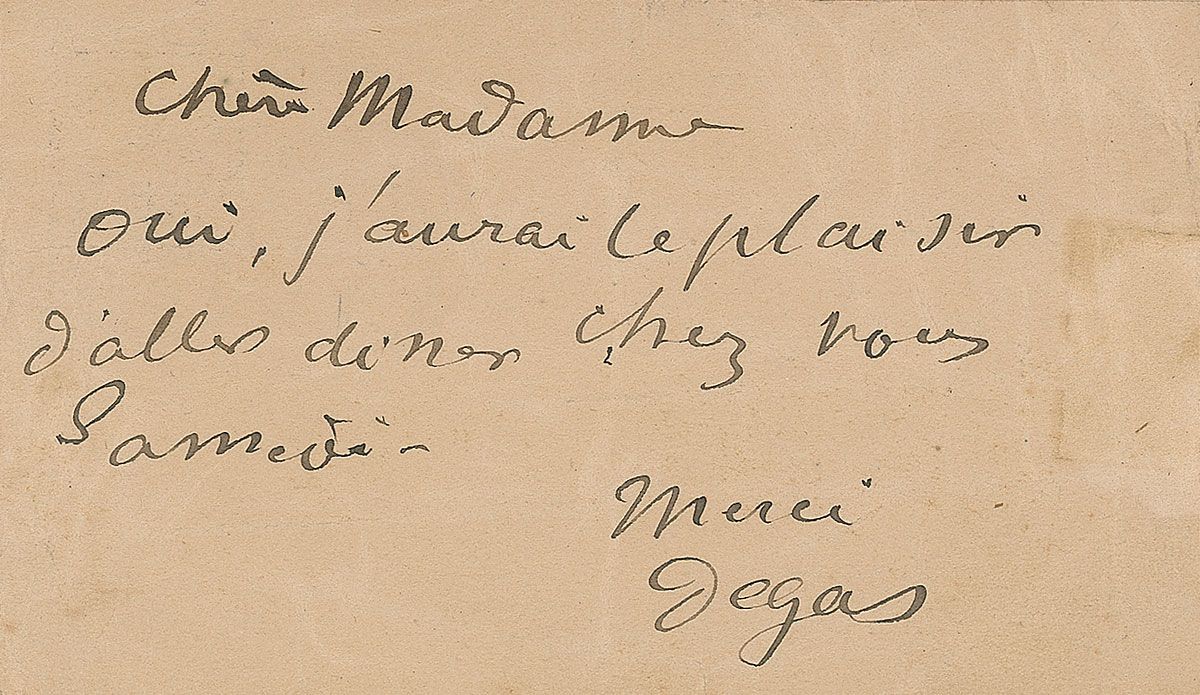 Chère Madame
oui, j'aurai le plaisir
d'aller diner chez vous
Samedi -
Merci
Degas